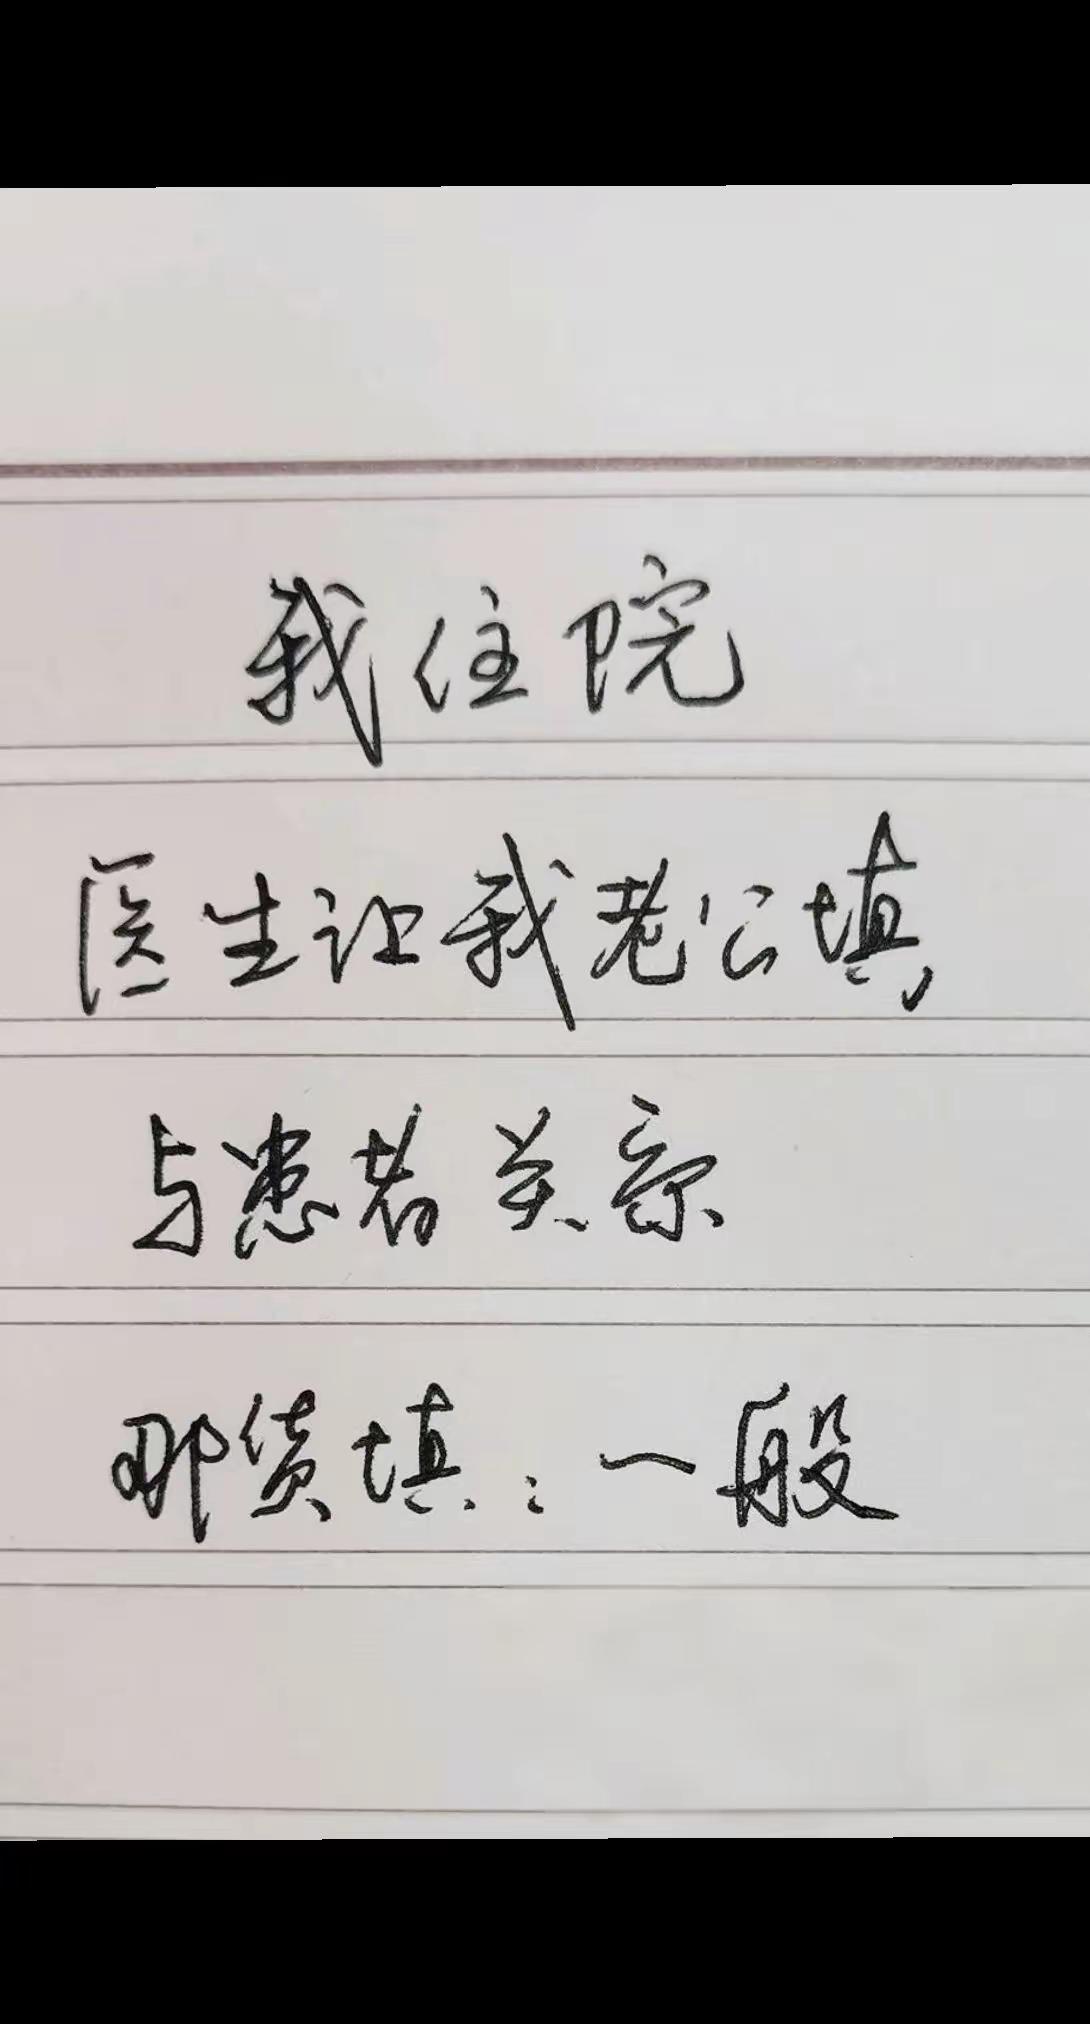 我住院
医生让我老公填
与患者关系
那货填：一般